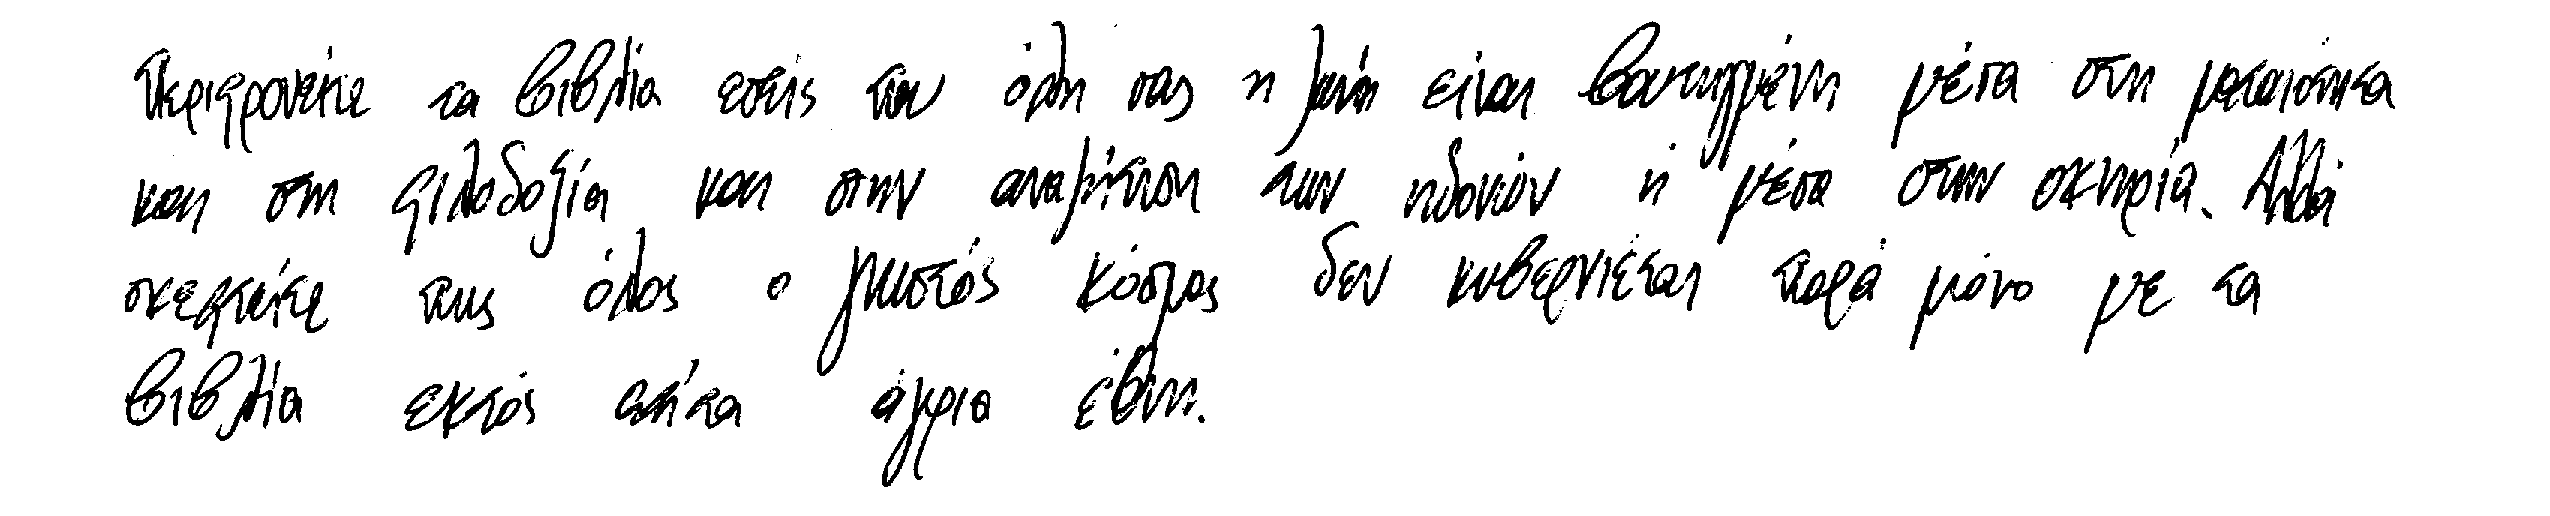 Περιφρονείτε τα βιβλία εσείς που όλη σας η ζωή είναι βουτηγμένη μέσα στη ματαιότητα
και στη φιλοδοξία και στην αναζήτηση των ηδονών ή μέσα στην οκνηρία. Αλλά
σκεφτείτε πως όλος ο γνωστός κόσμος δεν κυβερνιέται παρά μόνο με τα
βιβλία εκτός απ'τα άγρια έθνη.